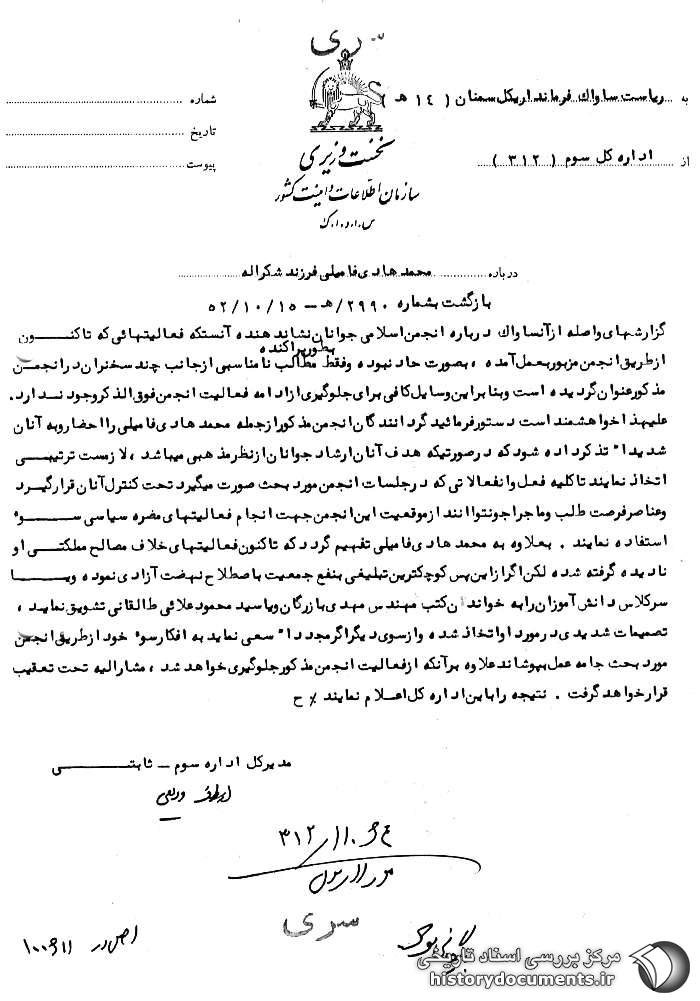 سری
به ریاست ساواک فرمانداریکل سمنان ( ۱۴ هـ )
شماره
تاریخ
از اداره کل سوم ( ۳۱۲ )
پیوست
نخست وزیری
سازمان اطلاعات و امنیت کشور
س.ا.و.ا.ک
درباره محمد هادی فامیلی فرزند شکراله
بازگشت بشماره ۲۹۹۰/هـ - ۵۲/۱۰/۱۵
گزارشهای واصله از آنساواک درباره انجمن اسلامی جوانان نشاندهنده آنستکه فعالیتهائی که تاکنون
بطور پراکنده
از طریق انجمن مزبور بعمل آمده ، بصورت حاد نبوده و فقط مطالب نامناسبی از جانب چند سخنران در انجمن
مذکور عنوان گردیده است و بنابراین وسایل کافی برای جلوگیری از ادامه فعالیت انجمن فوق الذکر وجود ندارد.
علیهذا خواهشمند است دستور فرمائید گردانندگان انجمن مذکور از جمله محمد هادی فامیلی را احضار و به آنان
شدیدا" تذکر داده شود که در صورتیکه هدف آنان ارشاد جوانان از نظر مذهبی میباشد ، لازمست ترتیبی
اتخاذ نمایند تا کلیه فعل و انفعالاتی که در جلسات انجمن مورد بحث صورت میگیرد تحت کنترل آنان قرار گیرد
و عناصر فرصت طلب و ماجراجو نتوانند از موقعیت این انجمن جهت انجام فعالیتهای مضره سیاسی سوء
استفاده نمایند . بعلاوه به محمد هادی فامیلی تفهیم گردد که تاکنون فعالیتهای خلاف مصالح مملکتی او
نادیده گرفته شده لکن اگر از این پس کوچکترین تبلیغی بنفع جمعیت باصطلاح نهضت آزادی نموده و یا
سر کلاس دانش آموزان را به خواندن کتب مهندس مهدی بازرگان و یا سید محمود علائی طالقانی تشویق نماید ،
تصمیمات شدیدی در مورد او اتخاذ شده و از سوی دیگر اگر مجددا" سعی نماید به افکار سوء خود از طریق انجمن
مورد بحث جامه عمل بپوشاند علاوه بر آنکه از فعالیت انجمن مذکور جلوگیری خواهد شد ، مشارالیه تحت تعقیب
قرار خواهد گرفت . نتیجه را باین اداره کل اعلام نمایند ٪ ح
مدیرکل اداره سوم - ثابتی
۳۱۲
سری
مرکز بررسی اسناد تاریخی
historydocuments.ir